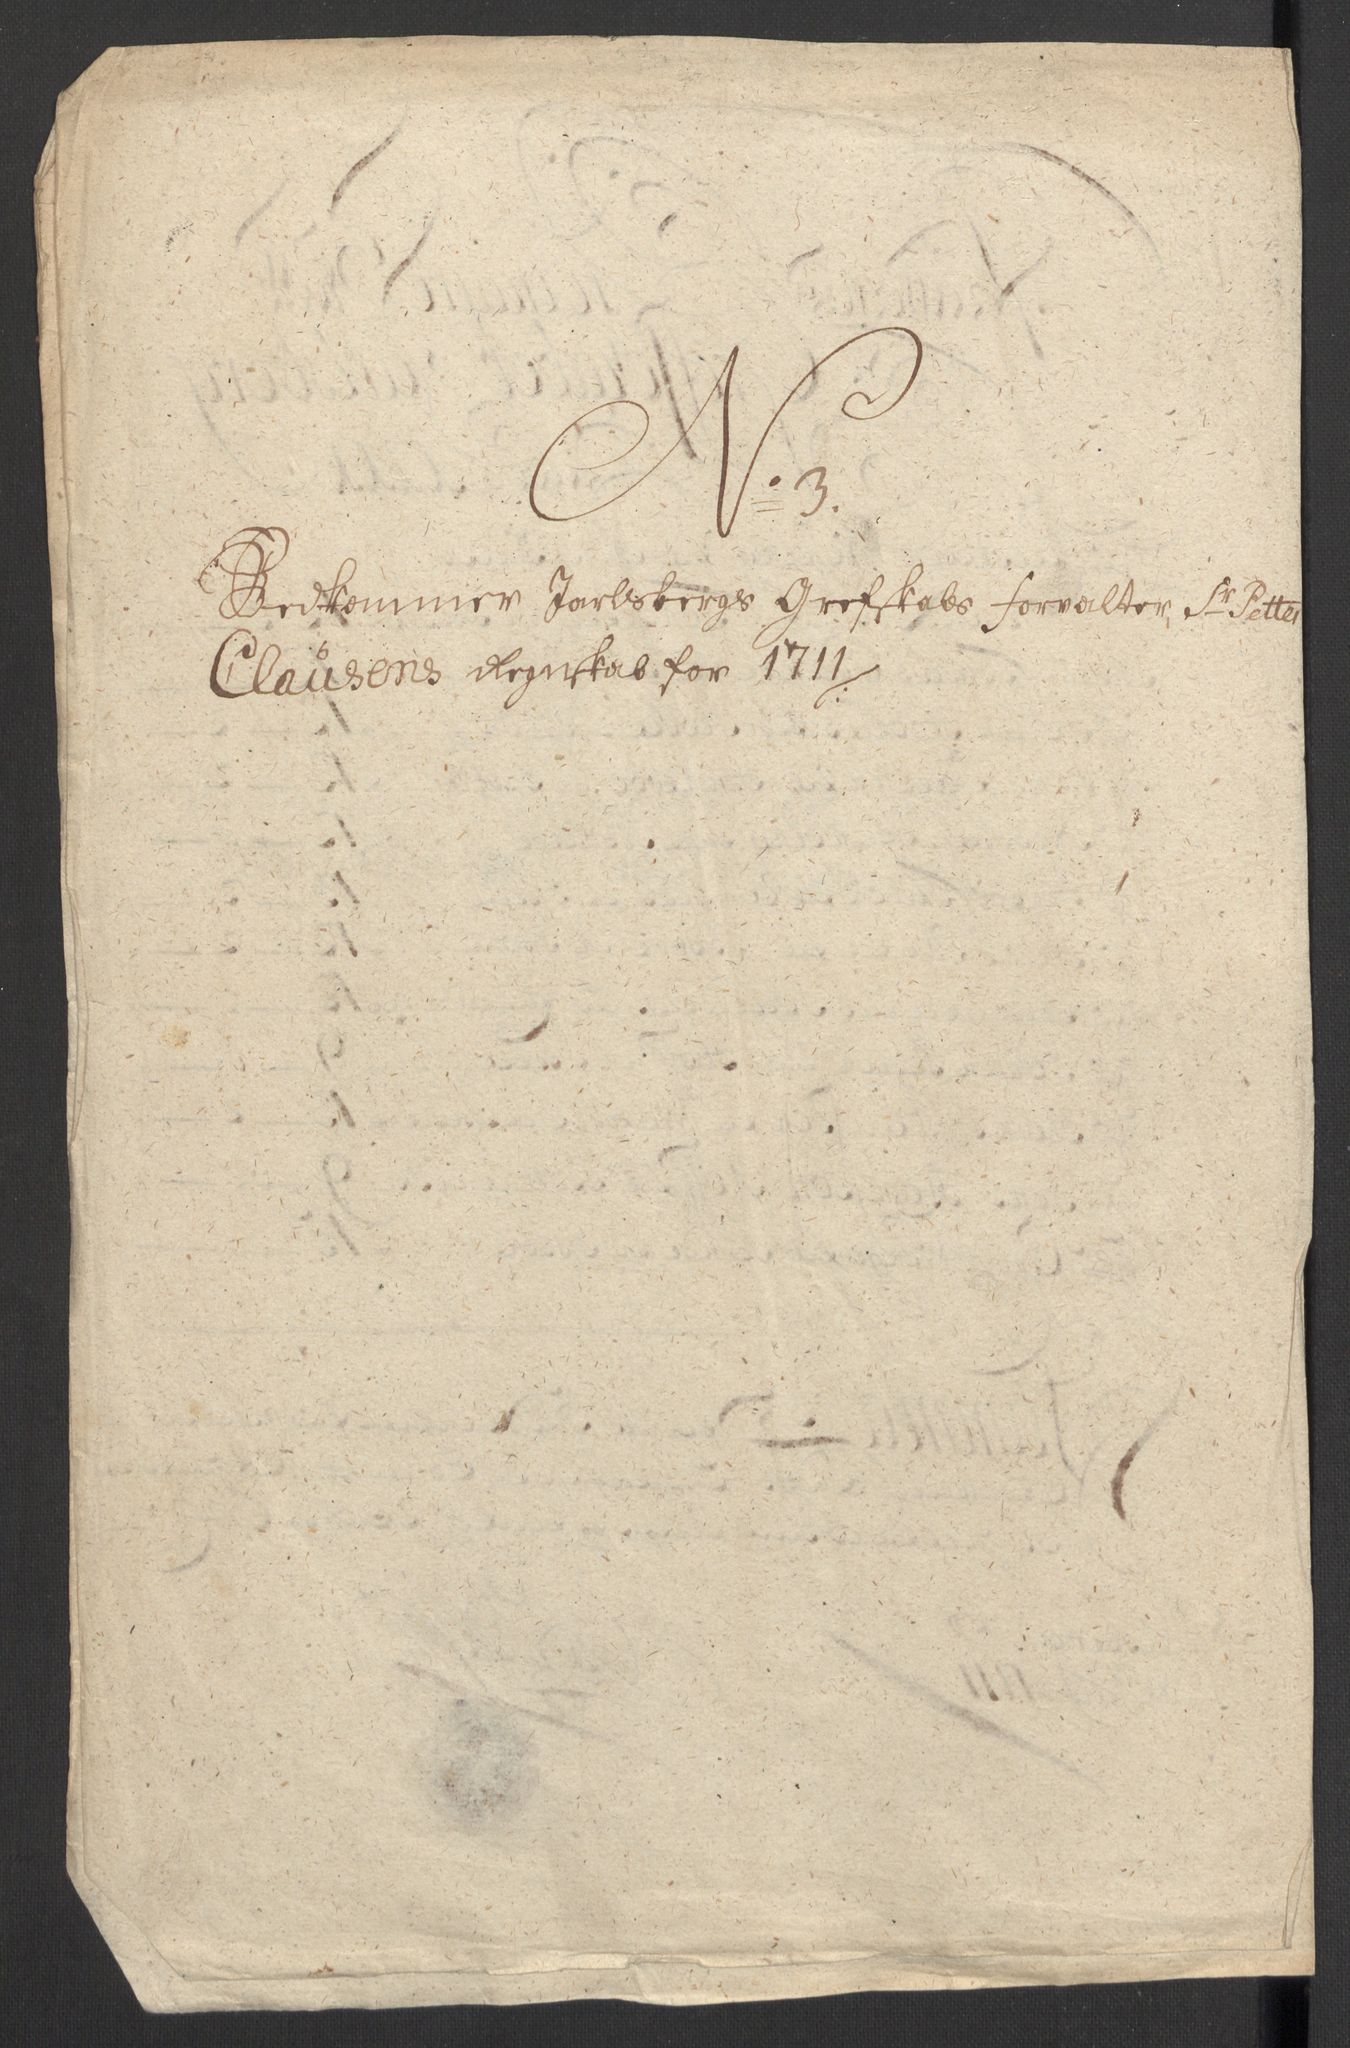 No: 3.
Vedkommer Jarlsbergs Grefskabs forvalter, Sr Petter
Clausens Regnskab for 1711/: